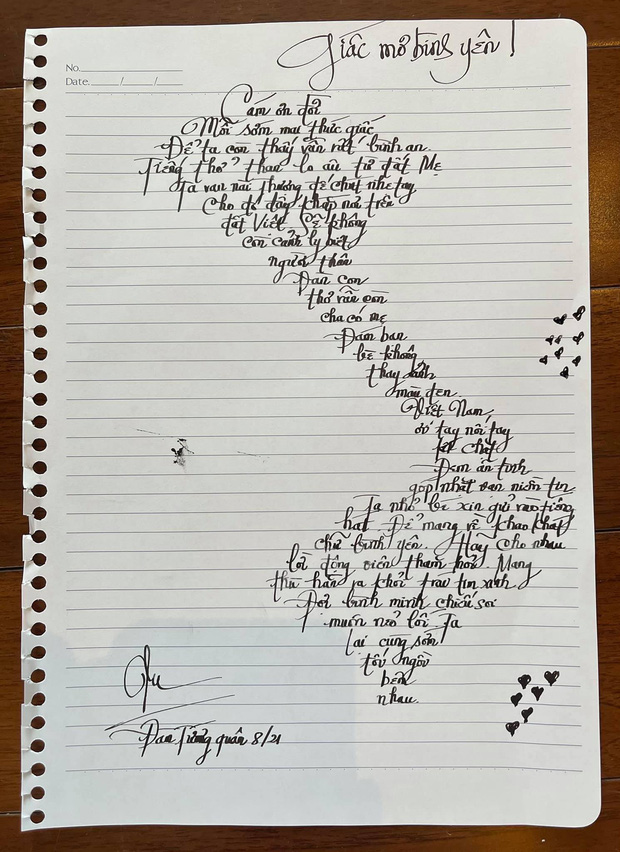 Giấc mơ bình yên!
No.
Date. / /
Cám ơn đời
Mỗi sớm mai thức giấc
Để ta còn thấy vẫn rất bình an.
Tiếng thở than lo âu từ đất Mẹ
Ta van nài thượng đế chút nhẹ tay
Cho đó đây khắp nơi trên
đất Việt Sẽ không
còn cảnh ly biệt
người thân
Đàn con
thơ vẫn còn
cha có mẹ
Đám bạn
bè không
thay ảnh
màu đen
Việt Nam
ơi tay nối tay
kết chặt
Đem ân tình
góp nhặt vạn niềm tin
Ta nhỏ bé xin gửi vào tiếng
hát Để mang về khao khát
chữ bình yên. Hãy cho nhau
lời động viên thăm hỏi. Mang
thù hằn ra khỏi trái tim xanh
Đợi bình minh chiếu soi
muôn nẻo lối Ta
lại cùng sớm
tối ngồi
bên
nhau.
Đan Trường quân 8/21